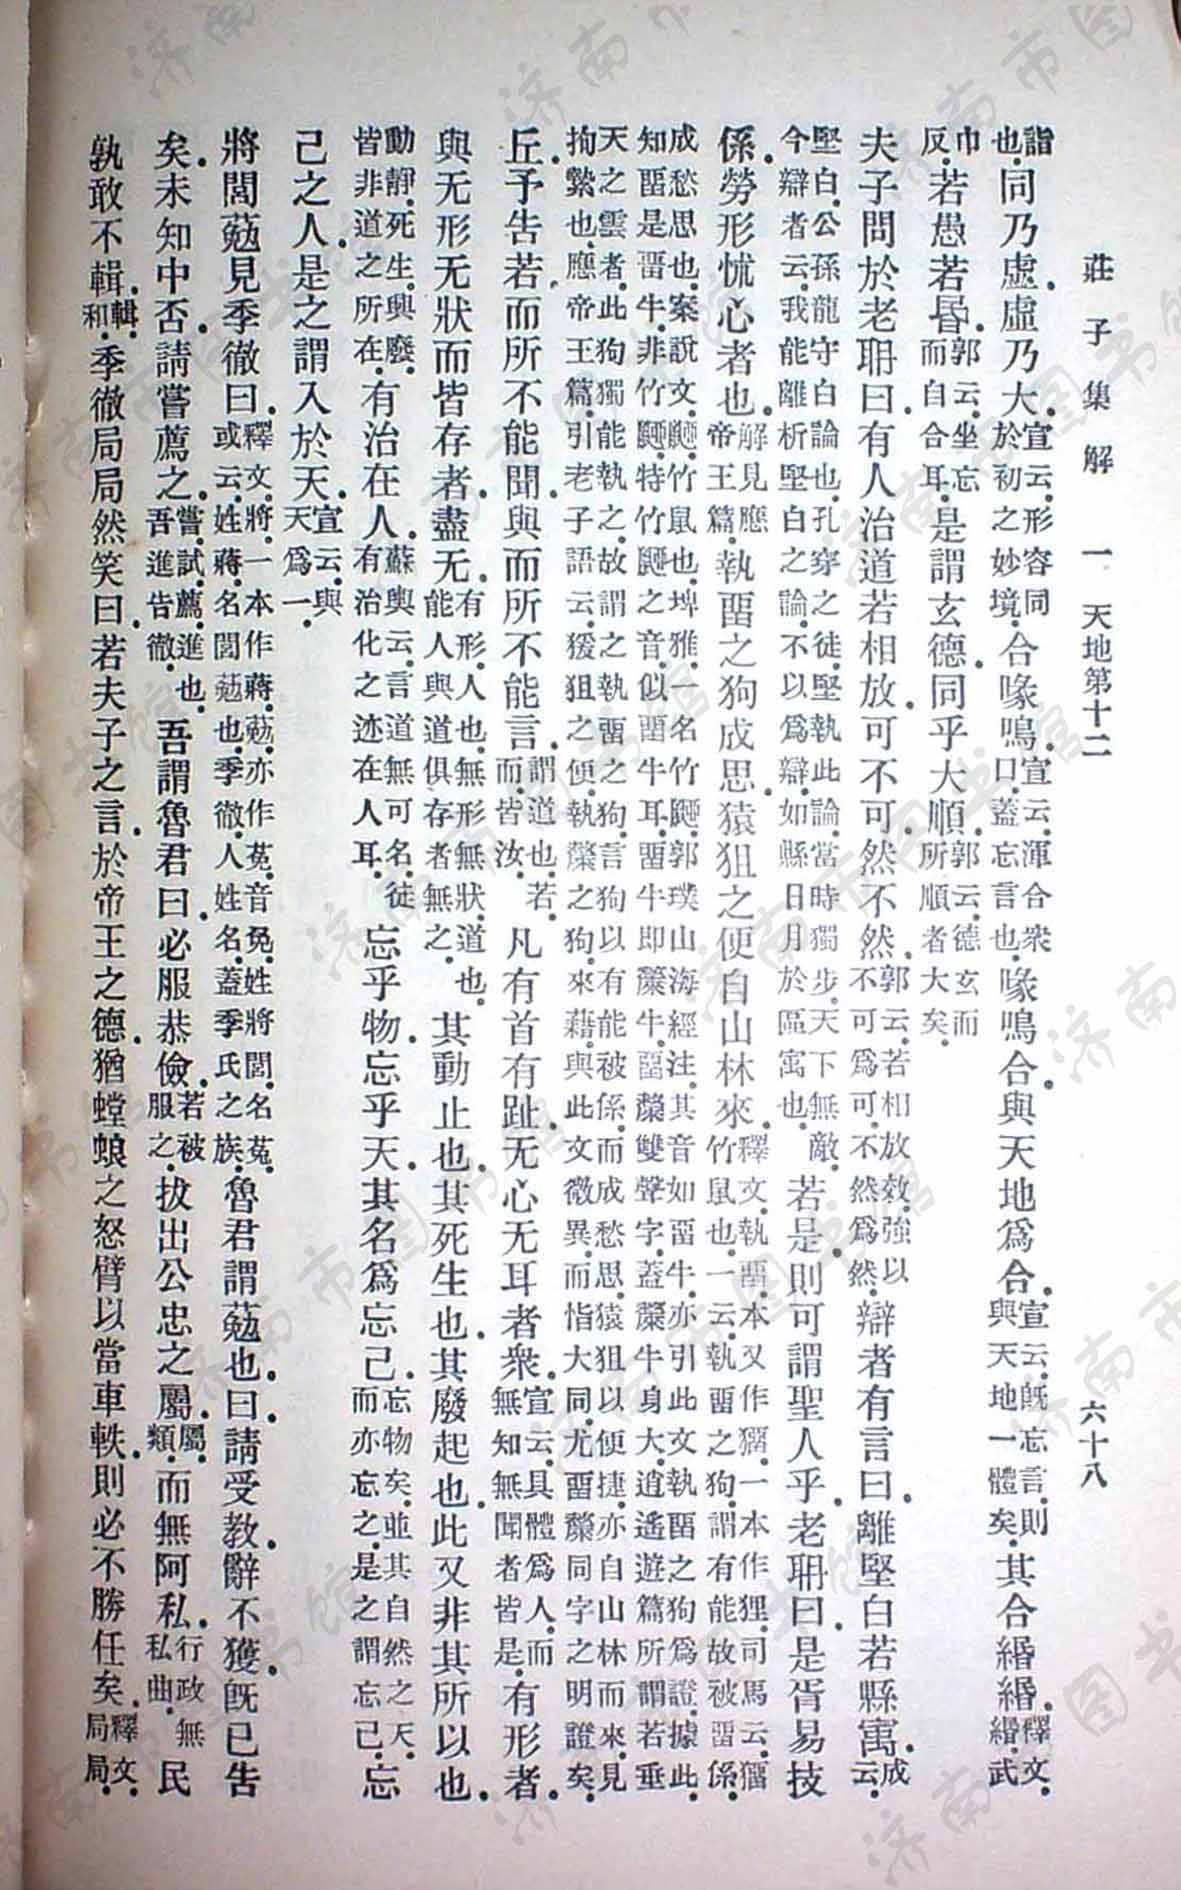 莊子集解　一　天地第十二　六十八
詣也。同乃虛。虛乃大。宣云。形容同於初之妙境。合喙鳴。宣云。渾合衆口。蓋忘言也。喙鳴合。與天地爲合。宣云。既忘言。則與天地一體矣。其合緡緡。釋文。緡。武
巾反。若愚若昬。郭云。坐忘而自合耳。是謂玄德。同乎大順。郭云。德玄而所順者大矣。
夫子問於老聃曰。有人治道若相放。可不可。然不然。郭云。若相放效。強以不可爲可。不然爲然。辯者有言曰。離堅白若縣寓。成云。
堅白。公孫龍守白論也。孔穿之徒。堅執此論。當時獨步。天下無敵。今辯者云。我能離析堅白之論。不以爲辯。如縣日月於區寓也。若是。則可謂聖人乎。老聃曰。是胥易技
係。勞形怵心者也。解見應帝王篇。執畱之狗成思。猿狙之便自山林來。釋文。執畱。本又作。一本作狸。司馬云。竹鼠也。一云。執畱之狗。謂有能故被畱係。
成愁思也。案說文。䶉。竹鼠也。埤雅。一名竹䶉。郭璞山海經注。其音如畱牛。亦引此文執畱之狗爲證。據此。知畱是畱牛。非竹䶉。特竹䶉之音似畱牛耳。畱牛即斄牛。畱斄雙聲字。蓋斄牛身大。逍遙遊篇所謂若垂
天之雲者。此狗獨能執之。故謂之執畱之狗。言狗以有能被係。而成愁思。猿狙以便捷。亦自山林而來。見拘縶也。應帝王篇。引老子語云。猨狙之便。執斄之狗。來藉。與此文微異。而恉大同。尤畱斄同字之明證矣。
丘。予告若而所不能聞。與而所不能言。謂道也。若而。皆汝。凡有首有趾。无心无耳者衆。宣云。具體爲人。而無知無聞者皆是。有形者。
與无形无狀而皆存者。盡无。有形。人也。無形無狀。道也。能人與道俱存者無之。其動止也。其死生也。其廢起也。此又非其所以也。
動靜。死生。興廢。皆非道之所在。有治在人。蘇輿云。言道無可名。徒有治化之迹在人耳。忘乎物。忘乎天。其名爲忘己。忘物矣。並其自然之天。而亦忘之。是之謂忘己。忘
己之人。是之謂入於天。宣云。與天爲一。
將閭葂見季徹曰。釋文。將。一本作蔣。葂。亦作莬。音免。姓將閭。名莬。或云。姓蔣。名閭葂也。季徹。人姓名。蓋季氏之族。魯君謂葂也。曰。請受教。辭不獲。既已告
矣。未知中否。請嘗薦之。嘗。試。薦。進也。吾進告徹。吾謂魯君曰。必服恭儉。若被服之。拔出公忠之屬。屬。類。而無阿私。行政無私曲。民
孰敢不輯。輯。和。季徹局局然笑曰。若夫子之言。於帝王之德。猶螳蜋之怒臂以當車軼。則必不勝任矣。釋文。局局。